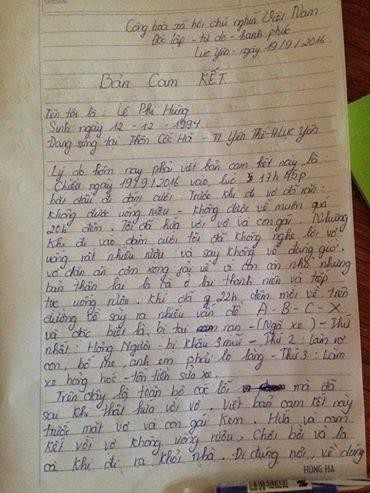 Cộng hòa xã hội chủ nghĩa Việt Nam
Độc lập - tự do - hạnh phúc
Lục Yên - ngày 19/9/2016
BẢN CAM KẾT.
Tên tôi là : Lê Phi Hùng
Sinh ngày 12 - 12 - 1994
Đang sống tại Thôn Cốc Há - TT Yên Thế - H Lục Yên
Lý do hôm nay phải viết bản cam kết này là :
Chiều ngày 19/9/2016 vào lúc 17h 45p
bắt đầu đi đám cưới. Trước khi đi vợ đã dặn :
không được uống rượu - không được về muộn quá
20h đêm. Tôi đã hứa với vợ và con gái. Nhưng
khi đi vào đám cưới tôi đã không nghe lời vợ
uống rất nhiều rượu và say không về đúng giờ.
vợ dặn ăn cơm xong về đi đón con nhỏ nhưng
bản thân lại la cà ở lại thanh niên và tiếp
tục uống rượu. Khi đã 22h đêm mới về trên
đường bê say ra nhiều vấn đề A - B - C - X
và đặc biệt là bị tai nạn - (Ngã xe) - Thứ
nhất : Hỏng Người - bị khâu 3 mũi - Thứ 2 : làm vợ
con, bố mẹ, anh em phải lo lắng - Thứ 3 : Làm
xe hỏng hóc - tốn tiền sửa xe.
Trên đây là toàn bộ các lỗi mà đã
sai khi thất hứa với vợ. Viết bản cam kết này
trước mặt vợ và con gái Kem. Hứa và cam
kết với vợ không uống rượu, chơi bời và la
cà khi đi ra khỏi nhà. Đi đúng nơi, về đúng
HỒNG HÀ